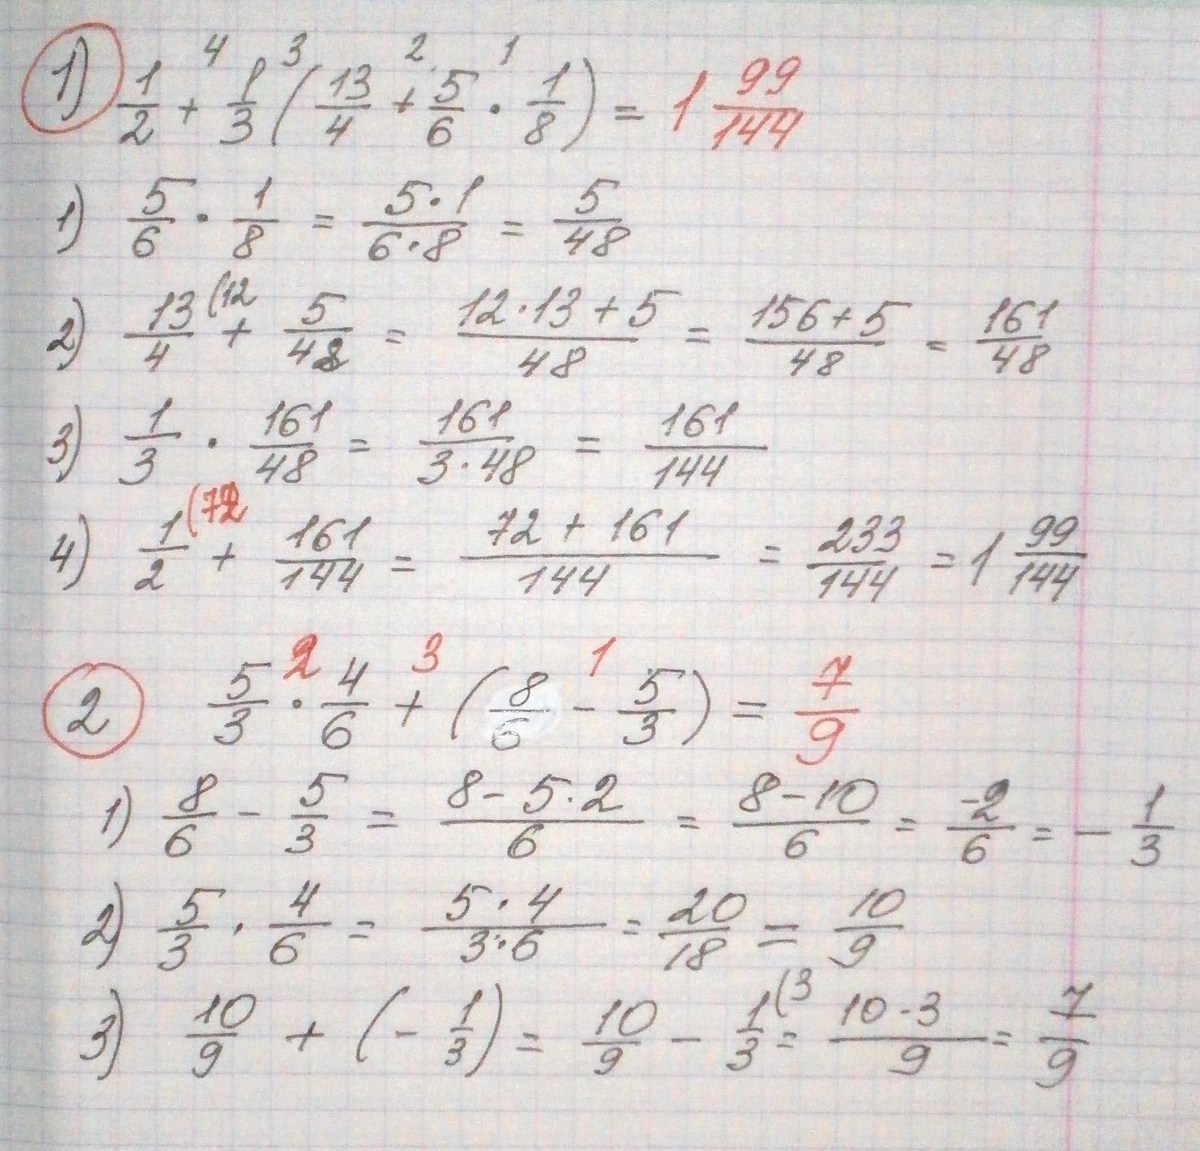 1) 1/2 + 1/3 (13/4 + 5/6 · 1/8) = 1 99/144
4 3 2 1
1) 5/6 · 1/8 = 5·1/6·8 = 5/48
2) 13/4 (12 + 5/48 = 12·13+5/48 = 156+5/48 = 161/48
3) 1/3 · 161/48 = 161/3·48 = 161/144
4) 1/2 (72 + 161/144 = 72+161/144 = 233/144 = 1 99/144
2 3 1
2 5/3 · 4/6 + (8/6 - 5/3) = 7/9
1) 8/6 - 5/3 = 8-5·2/6 = 8-10/6 = -2/6 = - 1/3
2) 5/3 · 4/6 = 5·4/3·6 = 20/18 = 10/9
3) 10/9 + (- 1/3) = 10/9 - 1/3 (3 = 10-3/9 = 7/9